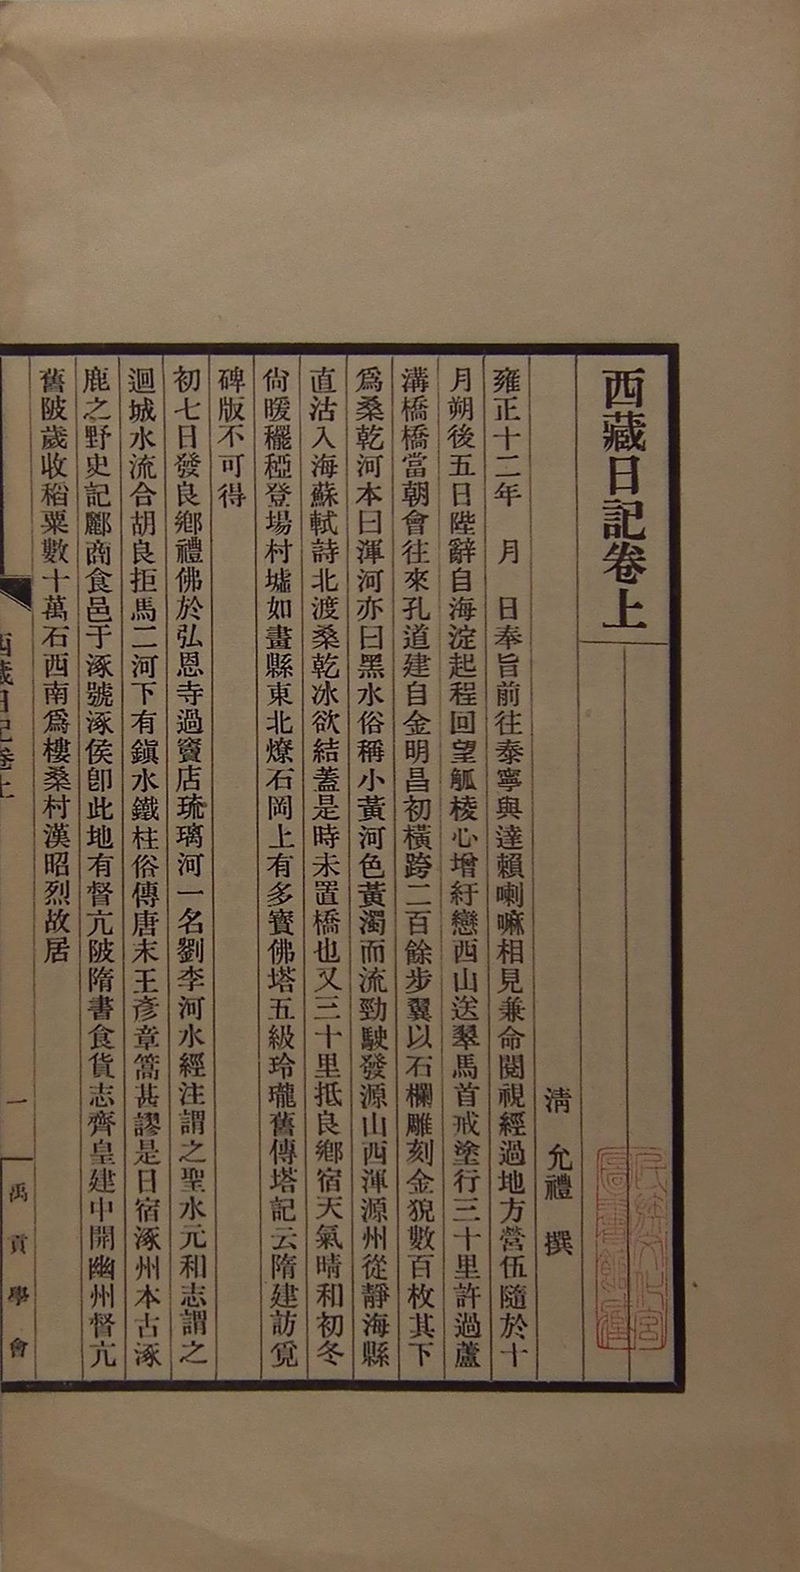 西藏日記卷上
清 允禮 撰
雍正十二年 月 日奉旨前往泰寧與達賴喇嘛相見兼命閱視經過地方營伍隨於十
月朔後五日陛辭自海淀起程回望觚棱心增紆戀西山送翠馬首戒塗行三十里許過蘆
溝橋橋當朝會往來孔道建自金明昌初橫跨二百餘步翼以石欄雕刻金猊數百枚其下
爲桑乾河本曰渾河亦曰黑水俗稱小黃河色黃濁而流勁駛發源山西渾源州從靜海縣
直沽入海蘇軾詩北渡桑乾冰欲結蓋是時未置橋也又三十里抵良鄉宿天氣晴和初冬
尙暖䆉稏登場村墟如畫縣東北燎石岡上有多寶佛塔五級玲瓏舊傳塔記云隋建訪覓
碑版不可得
初七日發良鄉禮佛於弘恩寺過竇店琉璃河一名劉李河水經注謂之聖水元和志謂之
迴城水流合胡良拒馬二河下有鎭水鐵柱俗傳唐末王彥章篙甚謬是日宿涿州本古涿
鹿之野史記酈商食邑于涿號涿侯卽此地有督亢陂隋書食貨志齊皇建中開幽州督亢
舊陂歲收稻粟數十萬石西南爲樓桑村漢昭烈故居
西藏日記卷上
一
禹貢學會
民族文化宮
圖書館藏